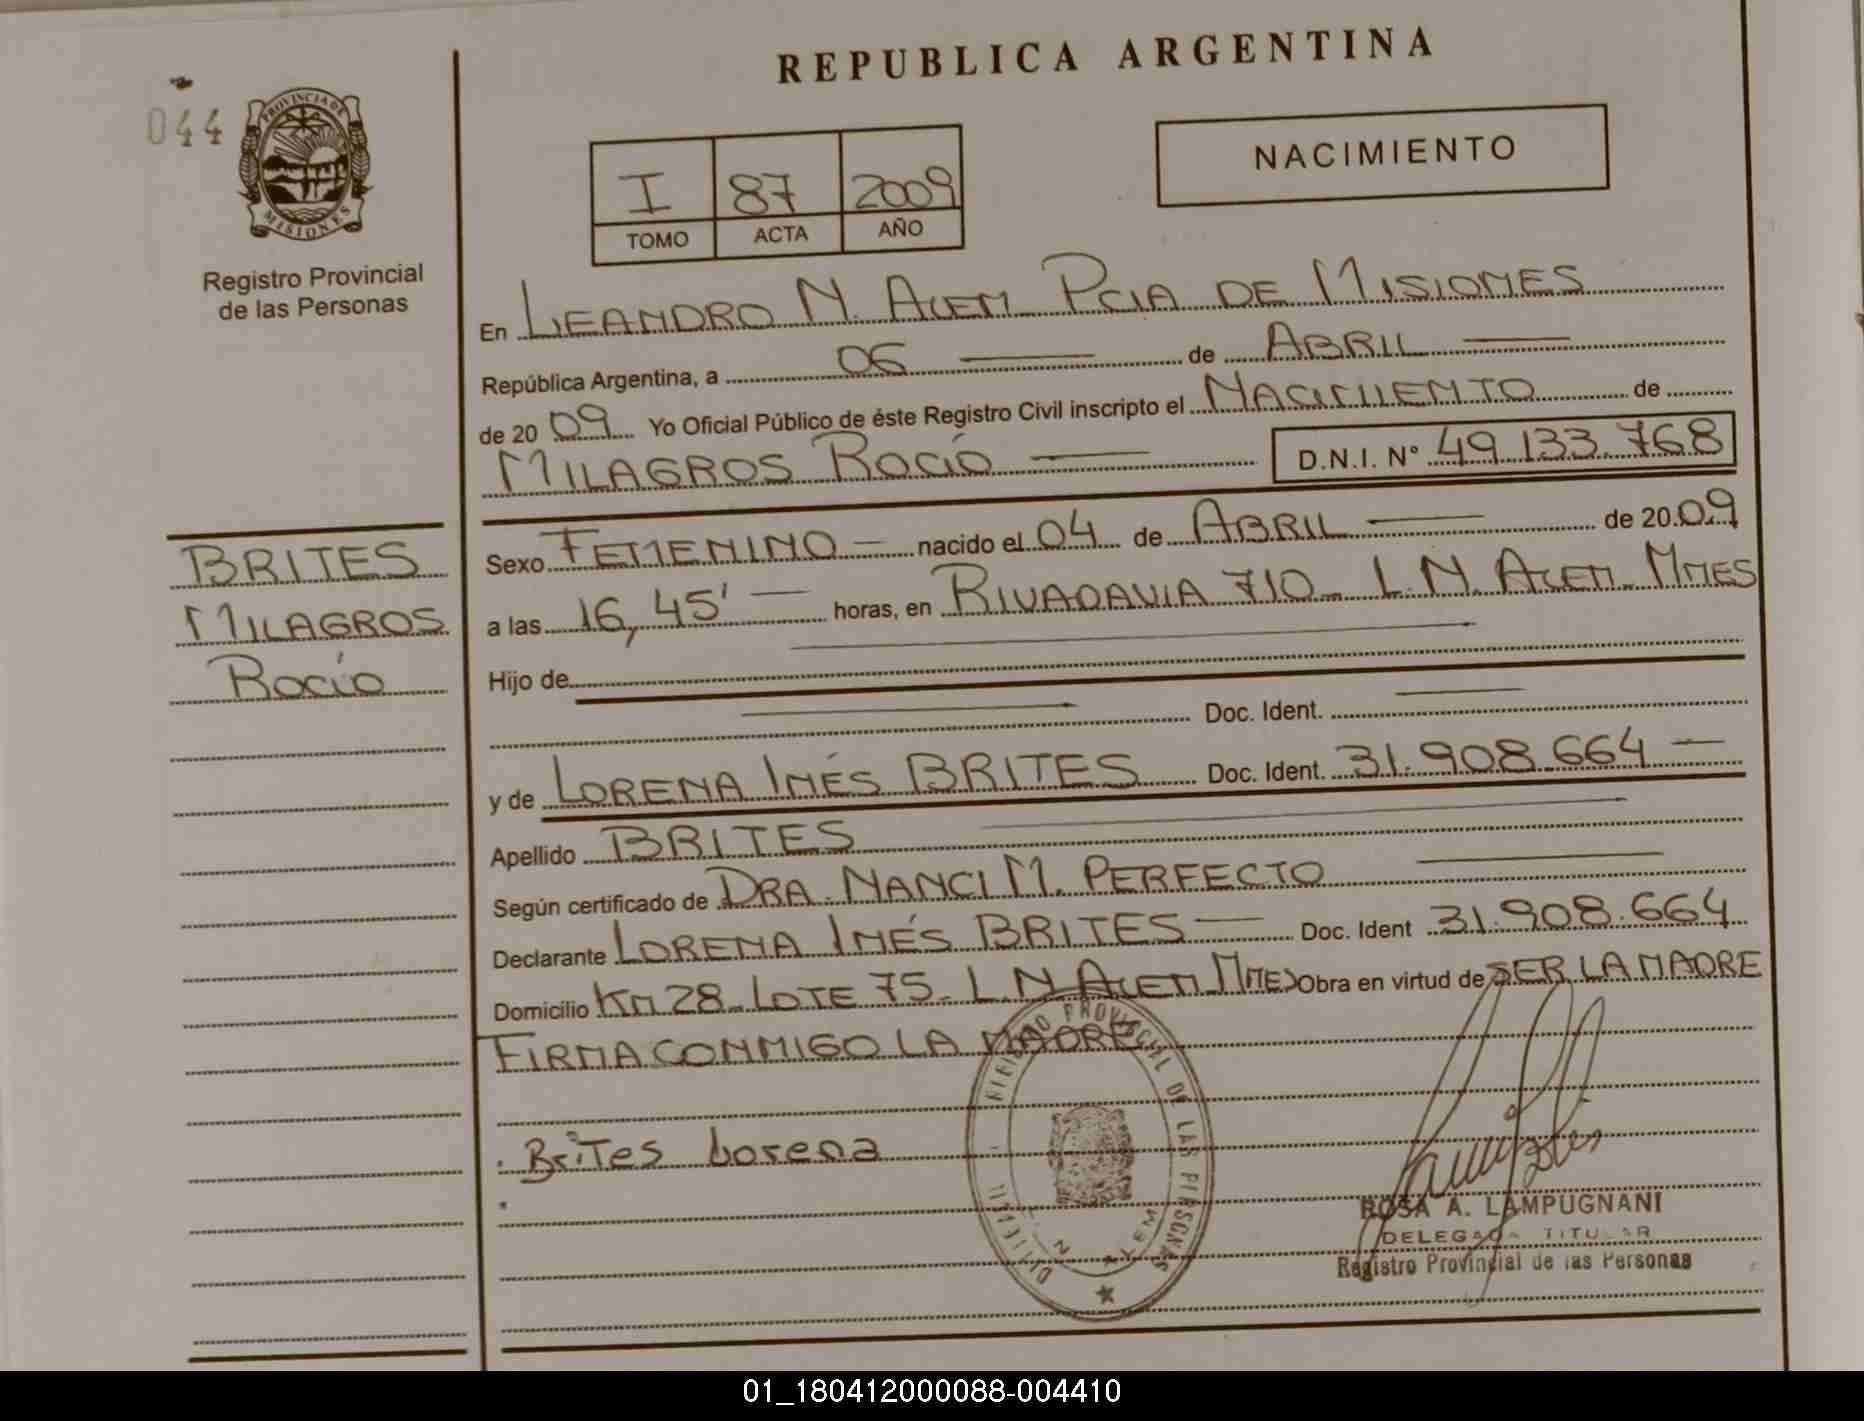 REPUBLICA ARGENTINA
044
PROVINCIA DE
MISIONES
Registro Provincial
de las Personas
I 87 2009
TOMO ACTA AÑO
NACIMIENTO
En LEANDRO N. ALEM PCIA DE MISIONES
República Argentina, a 06 de ABRIL
de 2009 Yo Oficial Público de éste Registro Civil inscripto el NACIMIENTO de
MILAGROS ROCÍO D.N.I. N° 49.133.768
BRITES
MILAGROS
ROCÍO
Sexo FEMENINO nacido el 04 de ABRIL de 2009
a las 16,45' horas, en RIVADAVIA 710 L.N. ALEM MNES
Hijo de
Doc. Ident.
y de LORENA INÉS BRITES Doc. Ident. 31.908.664
Apellido BRITES
Según certificado de DRA. NANCI M. PERFECTO
Declarante LORENA INÉS BRITES Doc. Ident 31.908.664
Domicilio KM 28 LOTE 75 L.N ALEM MNES Obra en virtud de SER LA MADRE
FIRMA CONMIGO LA MADRE
Brites Lorena
PROVINCIAL DE LAS PERSONAS
N ALEM
ROSA A. LAMPUGNANI
DELEGADA TITULAR
Registro Provincial de las Personas
01_180412000088-004410